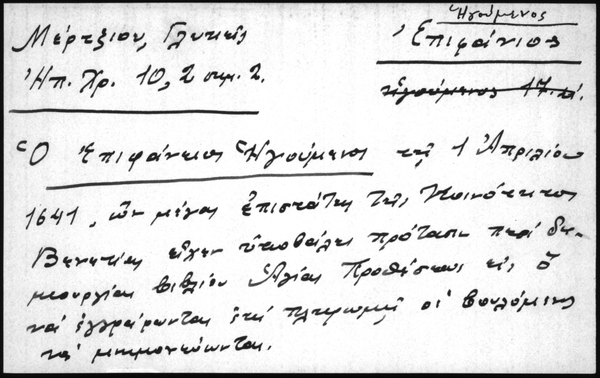 Μέρτζιου, Γλυκεῖς
Ἠπ. Χρ. 10, 2 σημ. 2.
Ἡγούμενος
Ἐπιφάνιος
ἡγούμενος 17. αἰ.
Ὁ Ἐπιφάνειος Ἡγούμενος τῇ 1 Ἀπριλίου
1641, ὢν μέγας ἐπιστάτης τῆς Κοινότητος
Βενετίας εἶχεν ὑποβάλει πρότασιν περὶ δη-
μιουργίας βιβλίου Ἁγίας Προθέσεως εἰς ὃ
νὰ ἐγγράφωνται ἐπὶ πληρωμῇ οἱ βουλόμενοι
νὰ μνημονεύωνται.